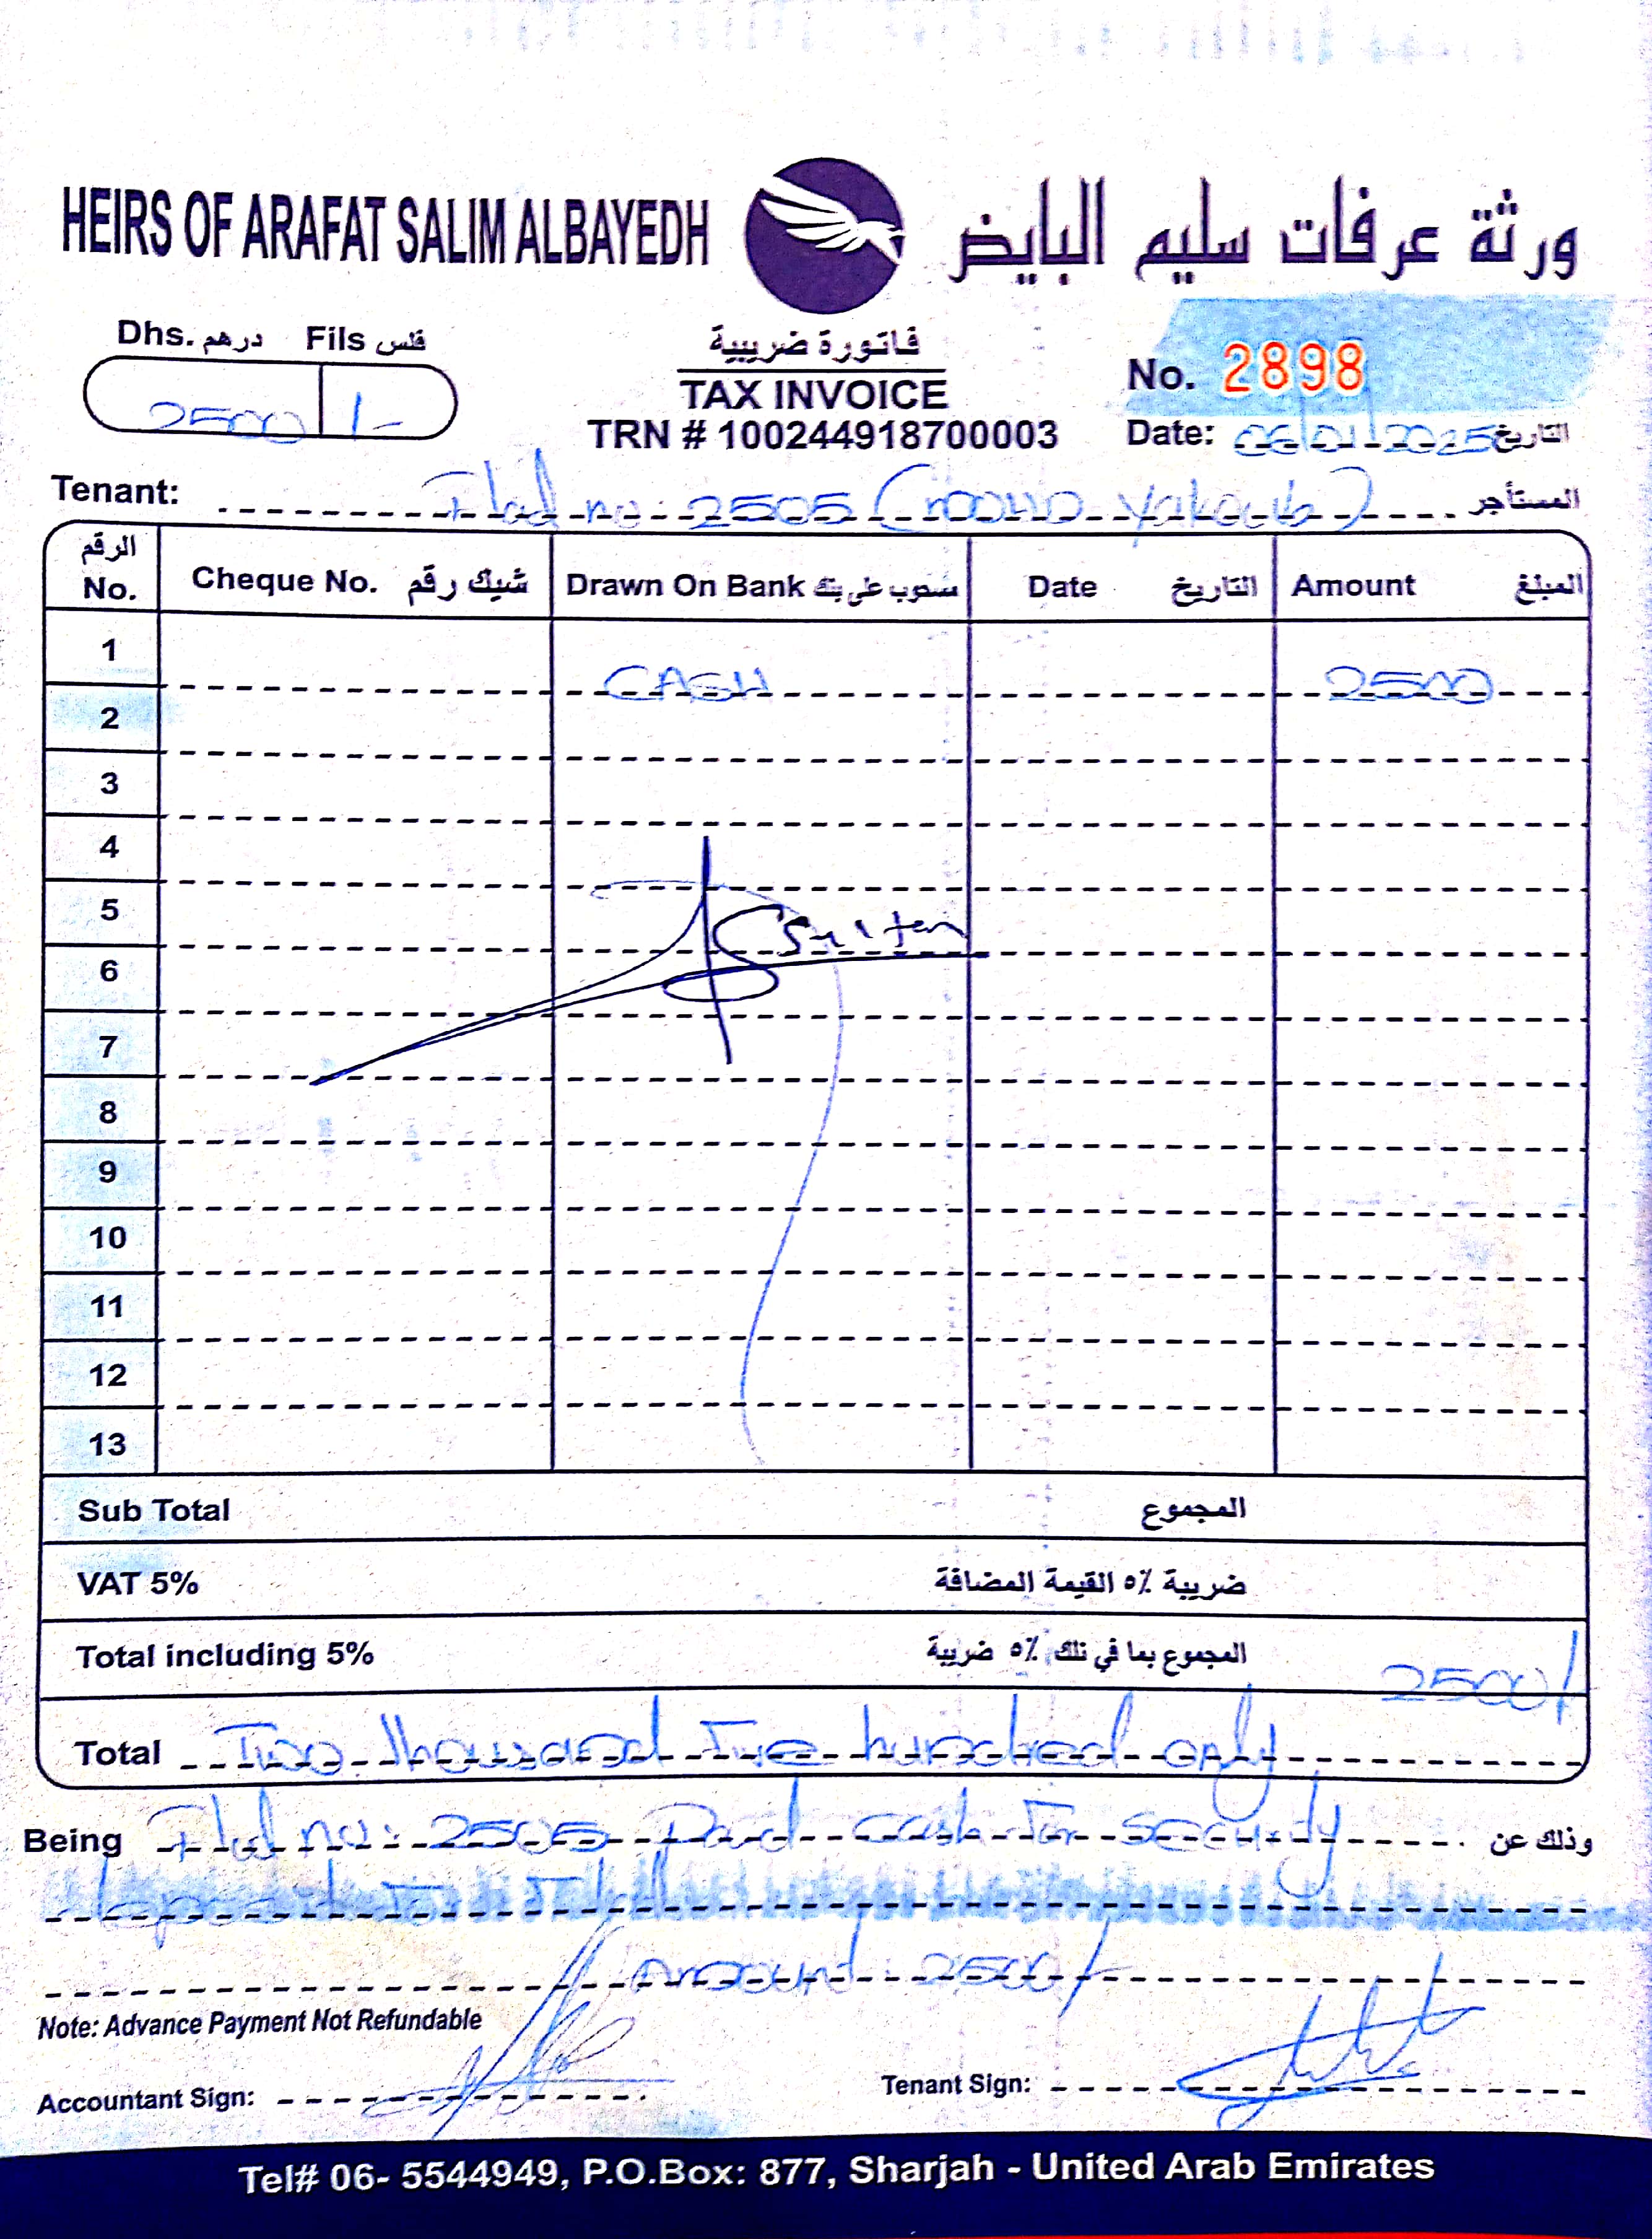 HEIRS OF ARAFAT SALIM ALBAYEDH ورثة عرفات سليم البايض
Dhs. درهم Fils فلس
2500 /-
فاتورة ضريبية
TAX INVOICE
TRN # 100244918700003
No. 2898
Date: 06/01/2025 التاريخ
Tenant: Flat no: 2505 ( Yakoub) المستأجر
الرقم No. Cheque No. شيك رقم Drawn On Bank مسحوب على بنك Date التاريخ Amount المبلغ
1 CASH 2500
2
3
4
5 Sultan
6
7
8
9
10
11
12
13
Sub Total المجموع
VAT 5% ضريبة ٥٪ القيمة المضافة
Total including 5% المجموع بما في ذلك ٥٪ ضريبة 2500/
Total Two thousand Five hundred only
Being Flat no: 2505 Paid cash For security وذلك عن
deposit For
Amount: 2500/
Note: Advance Payment Not Refundable
Accountant Sign: Tenant Sign:
Tel# 06- 5544949, P.O.Box: 877, Sharjah - United Arab Emirates